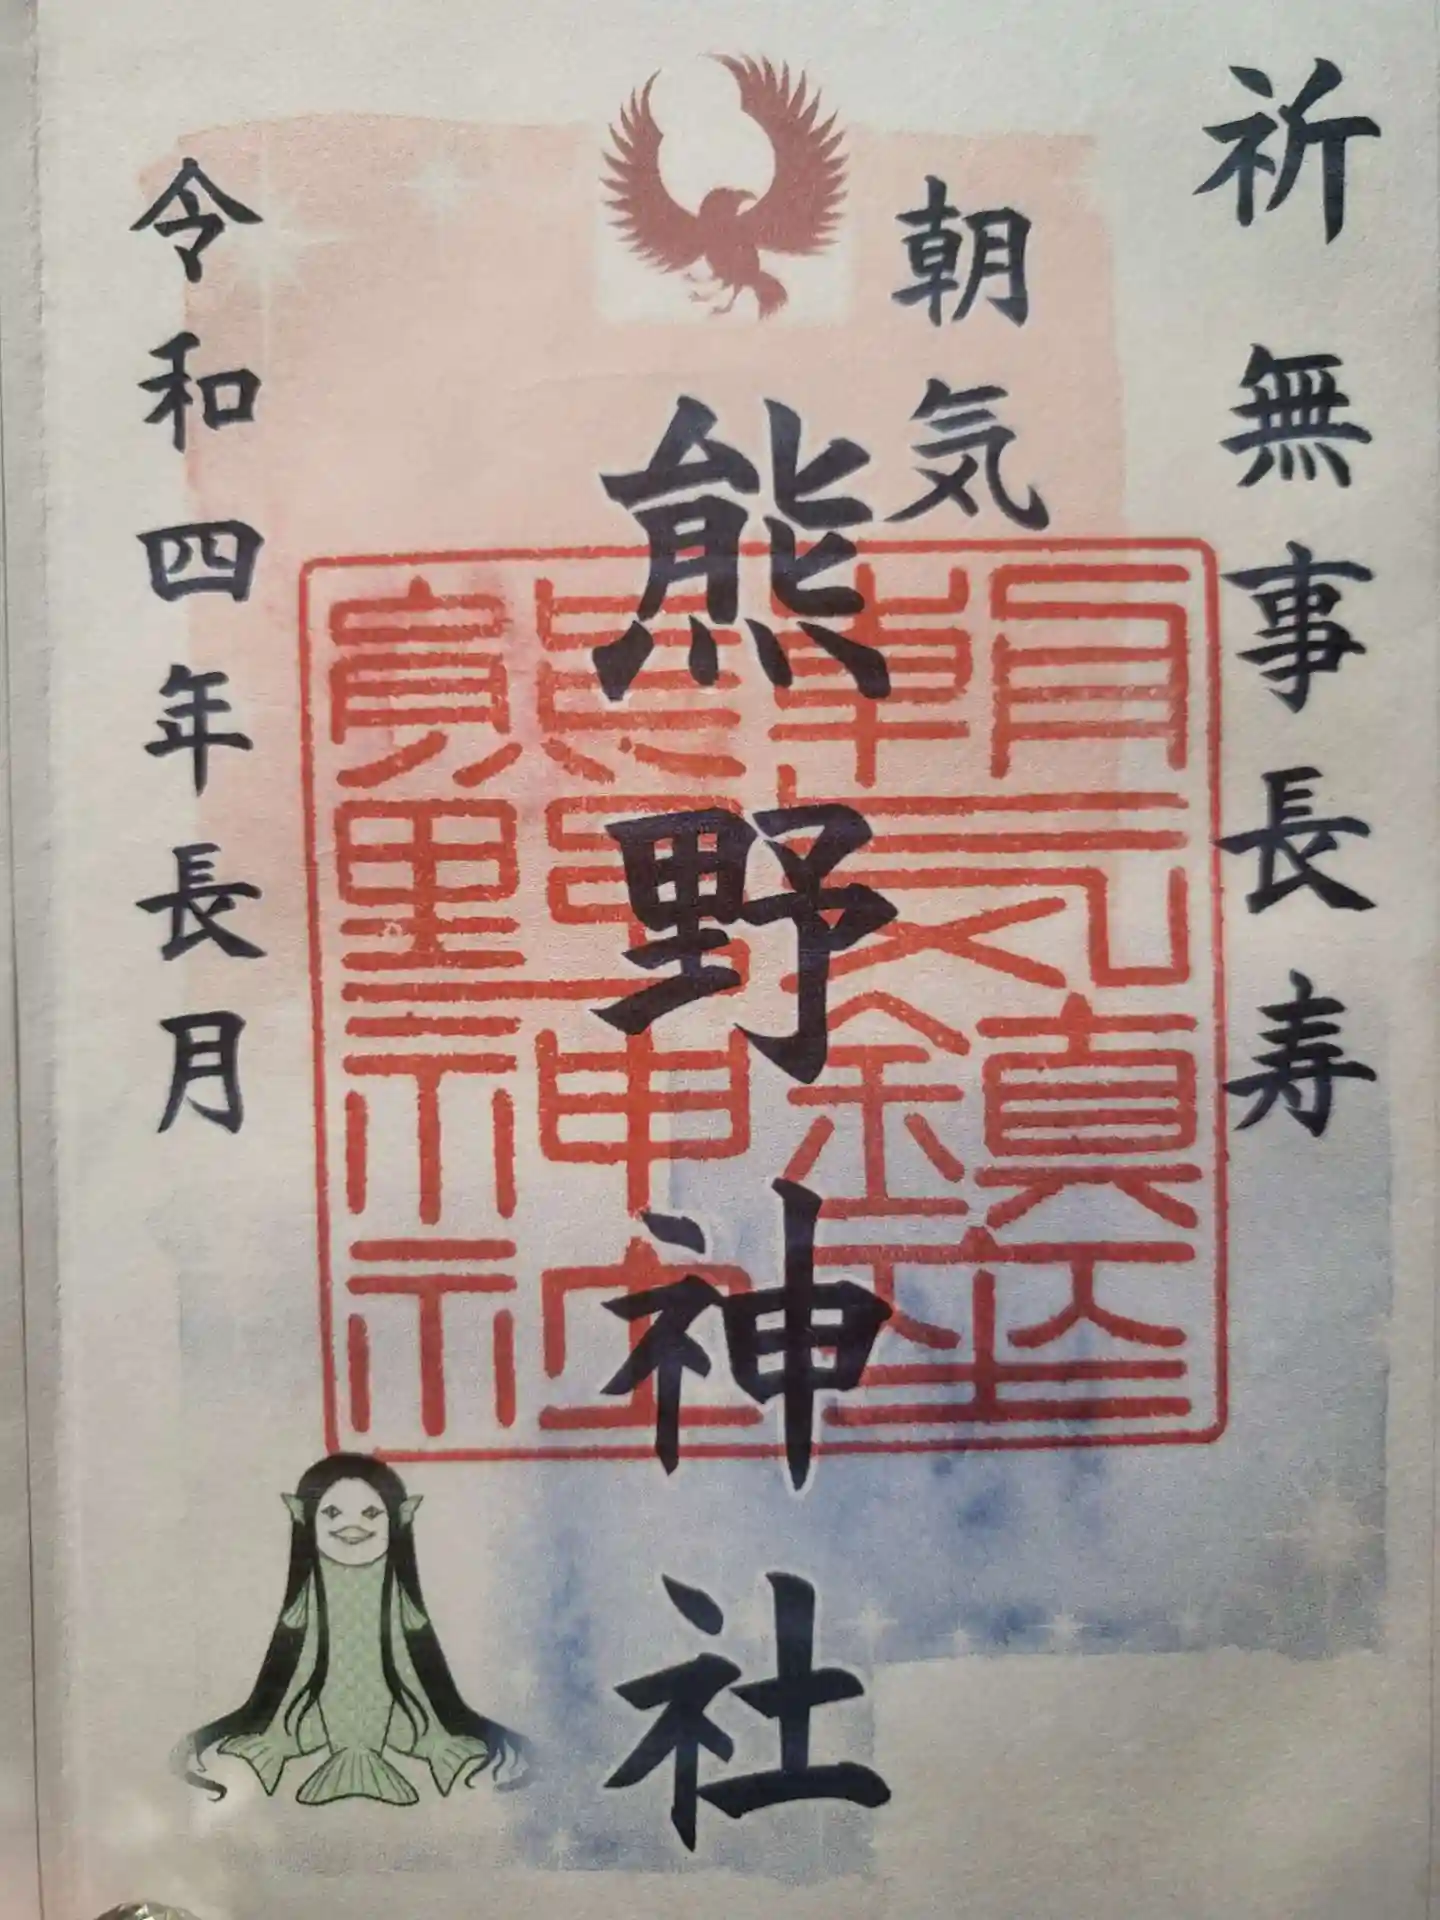 祈 無事長寿
朝気
熊野神社
令和四年長月
朝気鎮座
熊野神社